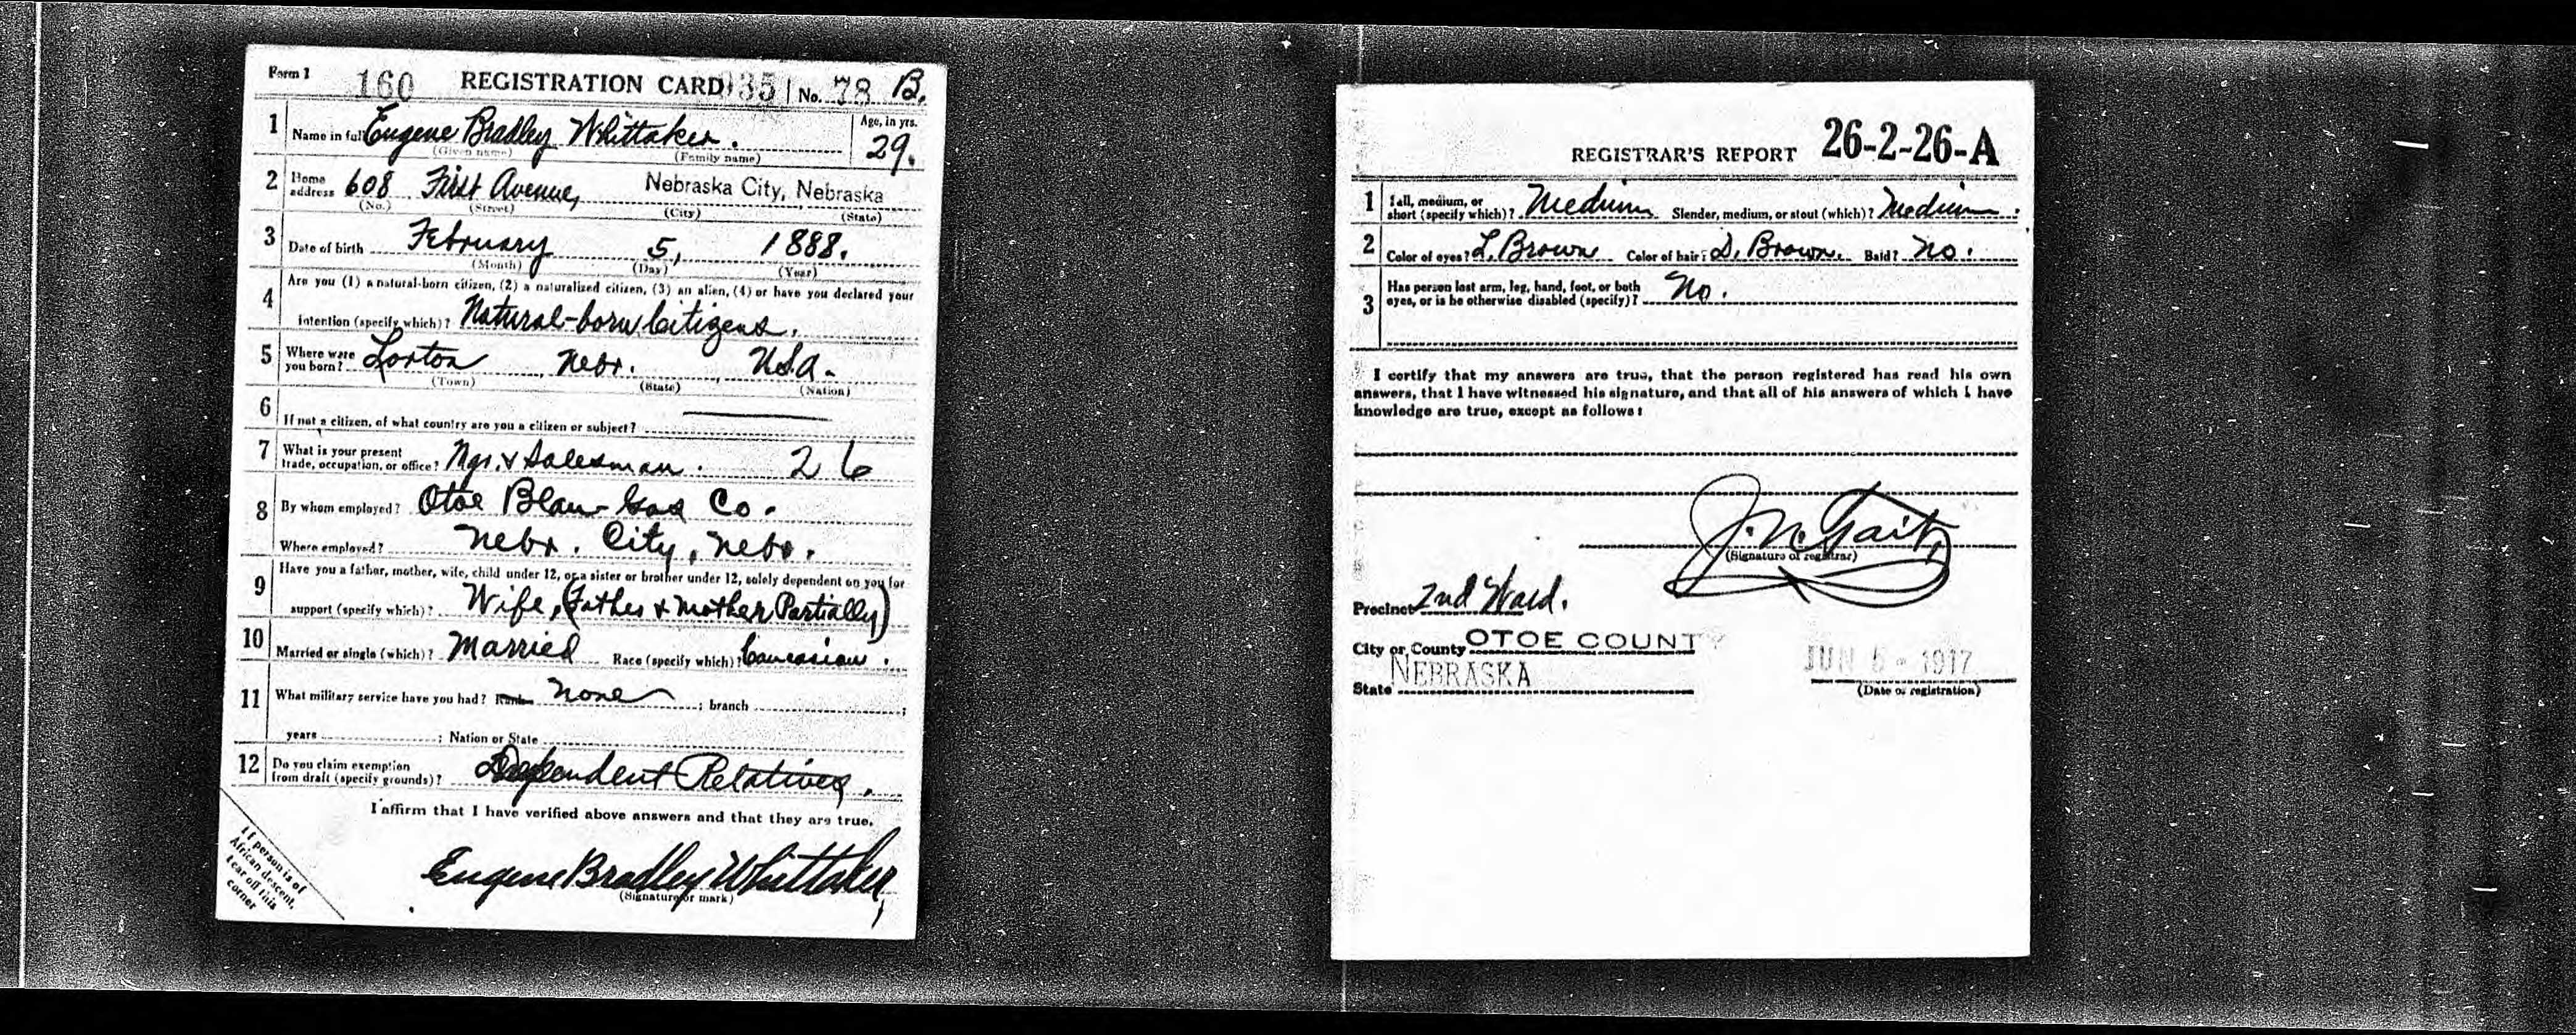 Form 1 160 REGISTRATION CARD 935 No. 78 B.
1 Name in full Eugene Bradley Whittaker. Age, in yrs.
(Given name) (Family name) 29.
2 Home address 608 First Avenue, Nebraska City, Nebraska
(No.) (Street) (City) (State)
3 Date of birth February 5, 1888.
(Month) (Day) (Year)
4 Are you (1) a natural-born citizen, (2) a naturalized citizen, (3) an alien, (4) or have you declared your
intention (specify which)? Natural-born Citizens.
5 Where were you born? Lorton, Nebr. U.S.A.
(Town) (State) (Nation)
6 If not a citizen, of what country are you a citizen or subject?
7 What is your present
trade, occupation, or office? Mgr. & Salesman. 26
8 By whom employed? Otoe Blau-Gas Co.
Where employed? Nebr. City, Nebr.
9 Have you a father, mother, wife, child under 12, or a sister or brother under 12, solely dependent on you for
support (specify which)? Wife, (Father & Mother Partially)
10 Married or single (which)? Married Race (specify which)? Caucasian.
11 What military service have you had? Rank None ; branch ;
years ; Nation or State
12 Do you claim exemption
from draft (specify grounds)? Dependent Relatives.
I affirm that I have verified above answers and that they are true.
Eugene Bradley Whittaker,
(Signature or mark)
If person is of
African descent,
tear off this
corner
REGISTRAR'S REPORT 26-2-26-A
1 Tall, medium, or
short (specify which)? Medium Slender, medium, or stout (which)? Medium.
2 Color of eyes? L. Brown Color of hair? D. Brown. Bald? No.
3 Has person lost arm, leg, hand, foot, or both
eyes, or is he otherwise disabled (specify)? No.
I certify that my answers are true, that the person registered has read his own
answers, that I have witnessed his signature, and that all of his answers of which I have
knowledge are true, except as follows:
J. N. Tait,
(Signature of registrar)
Precinct 2nd Ward.
City or County OTOE COUNTY
State NEBRASKA JUN 5 - 1917
(Date of registration)